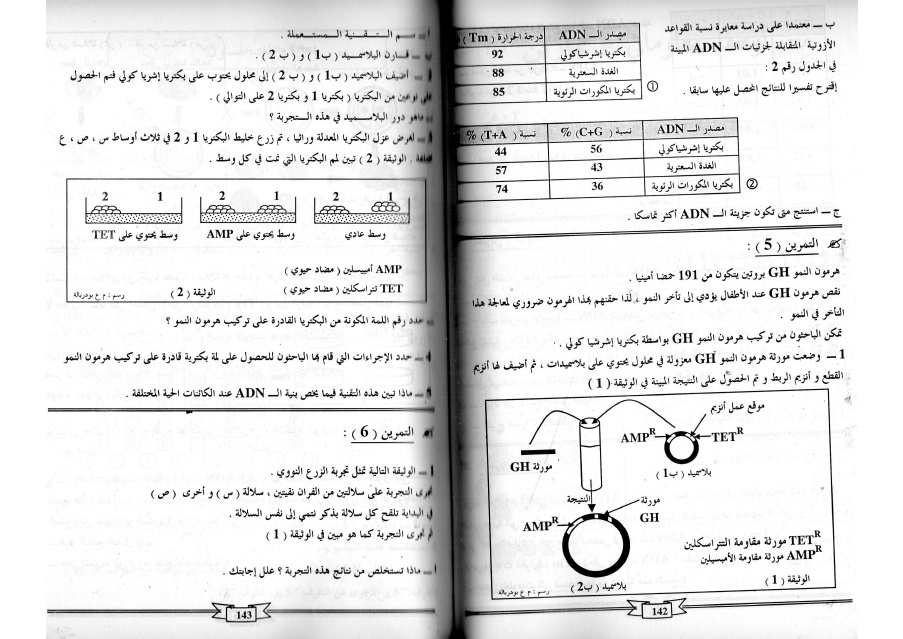 ب ــ معتمدا على دراسة معايرة نسبة القواعد
الأزوتية المتقابلة لجزئيات الــ ADN المبينة
في الجدول رقم 2 :
إقترح تفسيرا للنتائج المحصل عليها سابقا .
مصدر الــ ADN درجة الحرارة ( Tm )
بكتريا إشرشياكولي 92
الغدة السعترية 88
بكتريا المكورات الرئوية 85
①
مصدر الــ ADN نسبة ( C+G ) % نسبة ( T+A ) %
بكتريا إشرشياكولي 56 44
الغدة السعترية 43 57
بكتريا المكورات الرئوية 36 74
②
ج ــ استنتج متى تكون جزيئة الــ ADN أكثر تماسكا .
التمرين ( 5 ) :
هرمون النمو GH بروتين يتكون من 191 حمضا أمينيا .
نقص هرمون GH عند الأطفال يؤدي إلى تأخر النمو ، لذا حقنهم بهذا الهرمون ضروري لمعالجة هذا
التأخر في النمو .
تمكن الباحثون من تركيب هرمون النمو GH بواسطة بكتريا إشرشيا كولي .
1 ــ وضعت مورثة هرمون النمو GH معزولة في محلول يحتوي على بلاسميدات ، ثم أضيف لها أنزيم
القطع و أنزيم الربط و تم الحصول على النتيجة المبينة في الوثيقة ( 1 )
موقع عمل أنزيم
AMPR TETR
بلاسميد ( ب1 )
مورثة GH
النتيجة
مورثة
GH
AMPR
TETR مورثة مقاومة التتراسكلين
AMPR مورثة مقاومة الأمبسيلين
بلاسميد ( ب2 )
الوثيقة ( 1 )
رسم : م ع بودربالة
142
أ ــ سم التقنية المستعملة .
ب ــ قارن البلاسميد ( ب1 ) و ( ب 2 ) .
أضيف البلاسميد ( ب1 ) و ( ب 2 ) إلى محلول يحتوب على بكتريا إشريا كولي فتم الحصول
على نوعين من البكتريا ( بكتريا 1 و بكتريا 2 على التوالي ) .
ماهو دور البلاسميد في هذه التجربة ؟
لغرض عزل البكتريا المعدلة وراثيا ، تم زرع خليط البكتريا 1 و 2 في ثلاث أوساط س ، ص ، ع
مختلفة . الوثيقة ( 2 ) تبين لم البكتريا التي نمت في كل وسط .
2 1 2 1 2 1
وسط عادي وسط يحتوي على AMP وسط يحتوي على TET
AMP أمبيسلين ( مضاد حيوي )
TET تتراسكلين ( مضاد حيوي )
الوثيقة ( 2 )
رسم : م ع بودربالة
حدد رقم اللمة المكونة من البكتريا القادرة على تركيب هرمون النمو ؟
4 ــ حدد الإجراءات التي قام بها الباحثون للحصول على لمة بكترية قادرة على تركيب هرمون النمو
ــ ماذا تبين هذه التقنية فيما يخص بنية الــ ADN عند الكائنات الحية المختلفة .
التمرين ( 6 ) :
ــ الوثيقة التالية تمثل تجربة الزرع النووي .
أجرى التجربة على سلالتين من الفران نقيتين ، سلالة ( س ) و أخرى ( ص )
في البداية تلقح كل سلالة بذكر نتمي إلى نفس السلالة .
ثم أجرى التجربة كما هو مبين في الوثيقة ( 1 )
أ ــ ماذا تستخلص من نتائج هذه التجربة ؟ علل إجابتك .
143